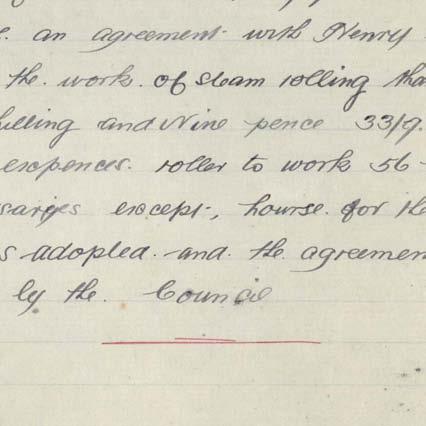 an agreement with Henry
the works of steam rolling tha
hilling and Nine pence 33/9.
expences. roller to work 56-
saries except, hourse for the
s adopted. and. the agreemen
by the. Council